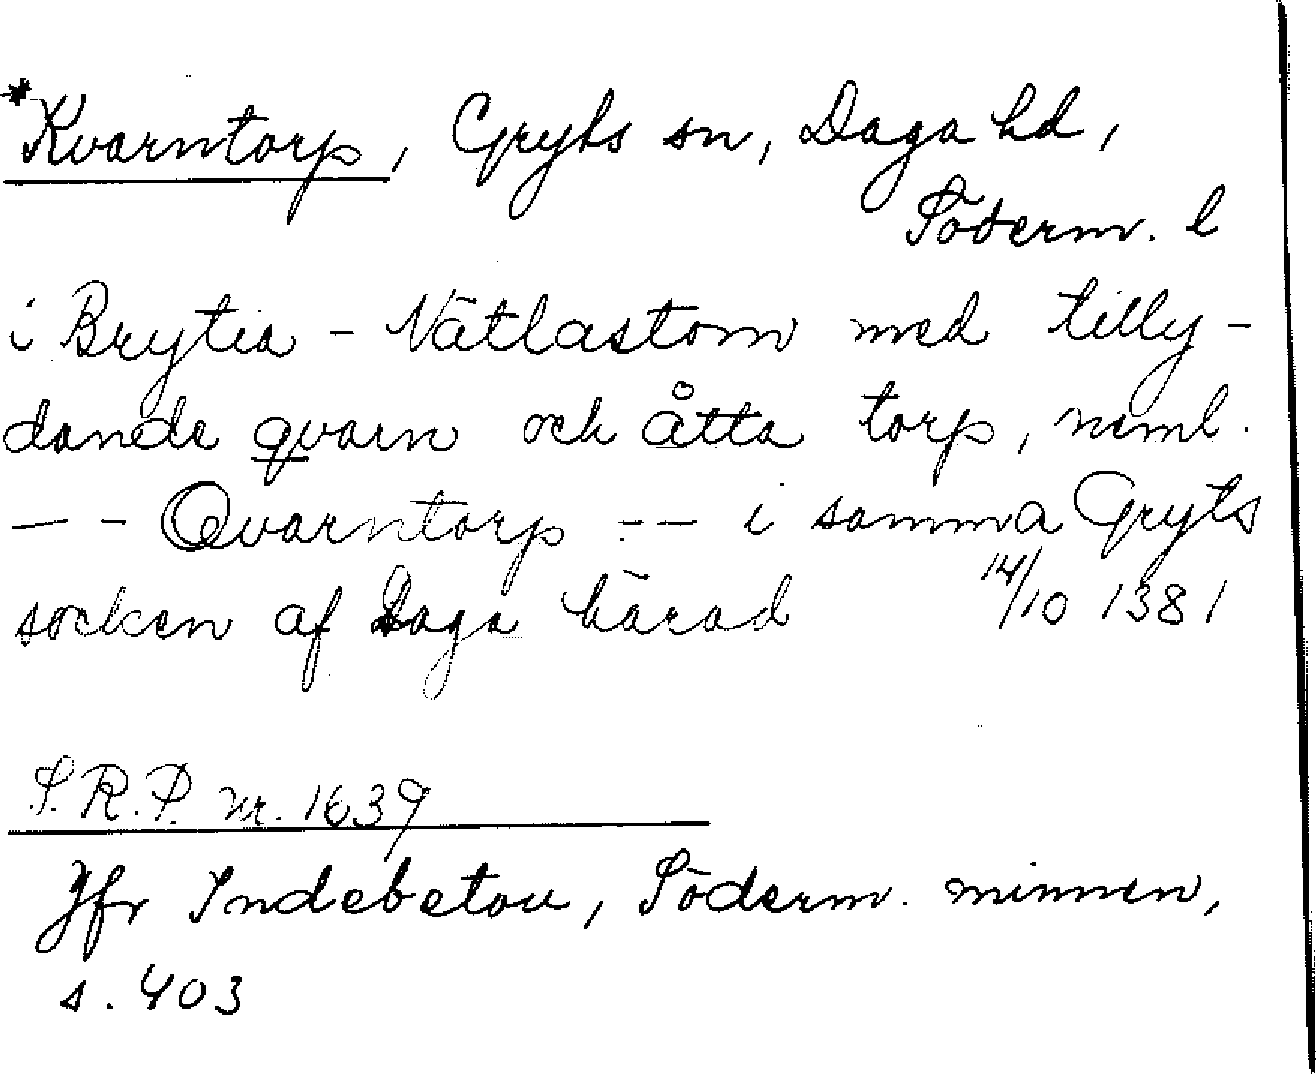 *Kvarntorp, Gryts sn, Daga hd,
Söderm. l
i Brytia - Nätlastom med tilly-
dande qvarn och åtta torp, neml.
— - Qvarntorp - — i samma Gryts
socken af Daga härad 14/10 1381
S.R.P. nr. 1639
Jfr Indebetou, Söderm. minnen,
s. 403